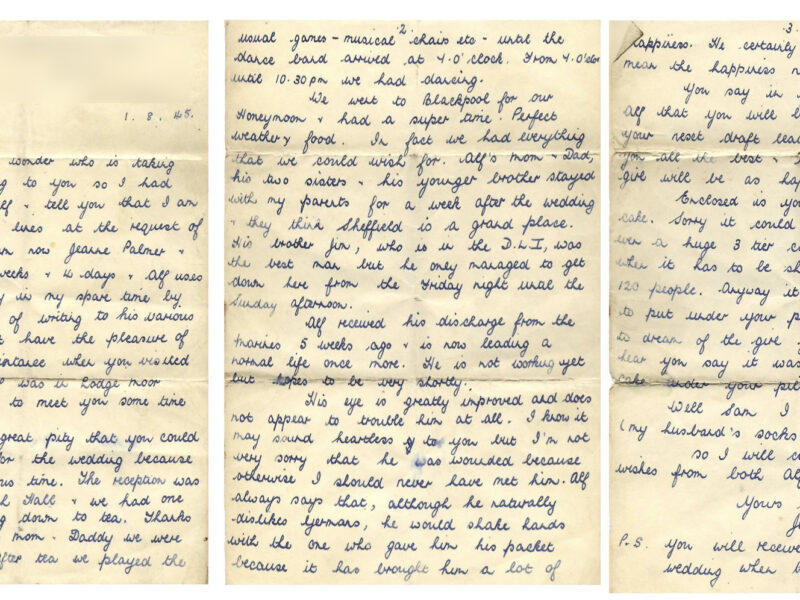 1. 8. 45.
wonder who is taking
ng to you so I had
lf & tell you that I am
lines at the request of
now Jeanne Palmer &
weeks & 4 days & Alf uses
y in my spare time by
of writing to his various
t have the pleasure of
intance when you visited
o was in Lodge moor
to meet you some time
great pity that you could
or the wedding because
us time. The reception was
h Hall & we had one
ng down to tea. Thanks
mom & Daddy we were
fter tea we played the
2.
usual games - musical chairs etc - until the
dance band arrived at 7.0'clock. From 7.0'cloc
until 10.30pm we had dancing.
We went to Blackpool for our
Honeymoon & had a super time. Perfect
weather & food. In fact we had everything
that we could wish for. Alf's mom & Dad,
his two sisters & his younger brother stayed
with my parents for a week after the wedding
& they think Sheffield is a grand place.
His brother Jim, who is in the D.L.I, was
the best man but he only managed to get
down here from the Friday night until the
Sunday afternoon.
Alf received his discharge from the
Marines 5 weeks ago & is now leading a
normal life once more. He is not working yet
but hopes to be very shortly.
His eye is greatly improved and does
not appear to trouble him at all. I know it
may sound heartless to you but I'm not
very sorry that he was wounded because
otherwise I should never have met him. Alf
always says that, although he naturally
dislikes Germans, he would shake hands
with the one who gave him his packet
because it has brought him a lot of
3.
happiness. He certainly
mean the happiness
You say in
Alf that you will b
your next draft lea
you all the best &
give will be as hap
Enclosed is yo
cake. Sorry it could
even a huge 3 tier c
when it has to be sh
120 people. Anyway it
to put under your p
to dream of the give
hear you say it was
cake under your pil
Well Sam I
(my husband's socks
so I will c
wishes from both Alf
Yours
J
P.S. You will receive
wedding when